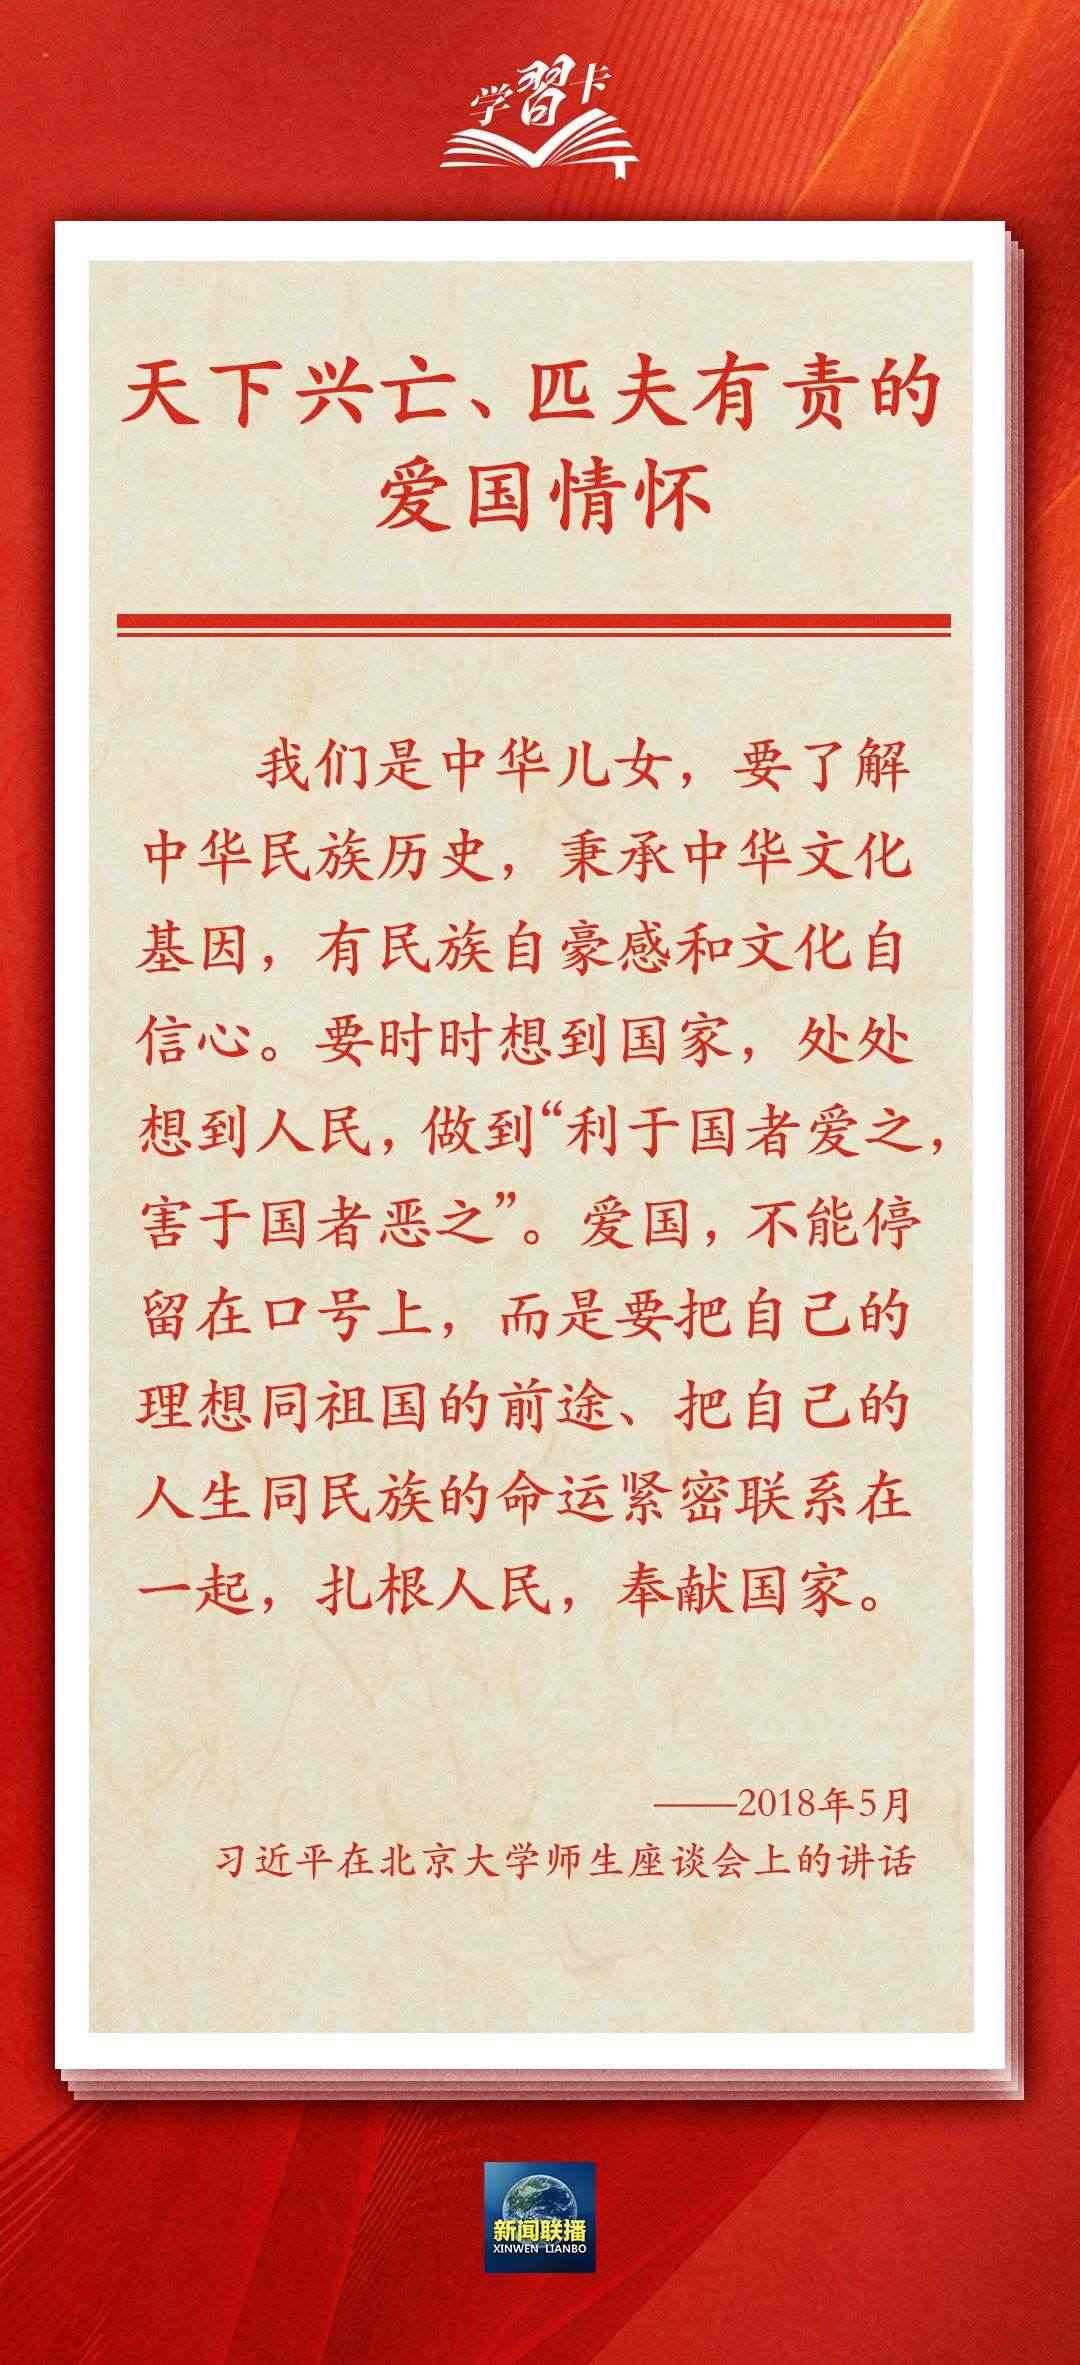 学習卡
天下兴亡、匹夫有责的
爱国情怀
我们是中华儿女，要了解
中华民族历史，秉承中华文化
基因，有民族自豪感和文化自
信心。要时时想到国家，处处
想到人民，做到“利于国者爱之，
害于国者恶之”。爱国，不能停
留在口号上，而是要把自己的
理想同祖国的前途、把自己的
人生同民族的命运紧密联系在
一起，扎根人民，奉献国家。
——2018年5月
习近平在北京大学师生座谈会上的讲话
新闻联播
XINWEN LIANBO